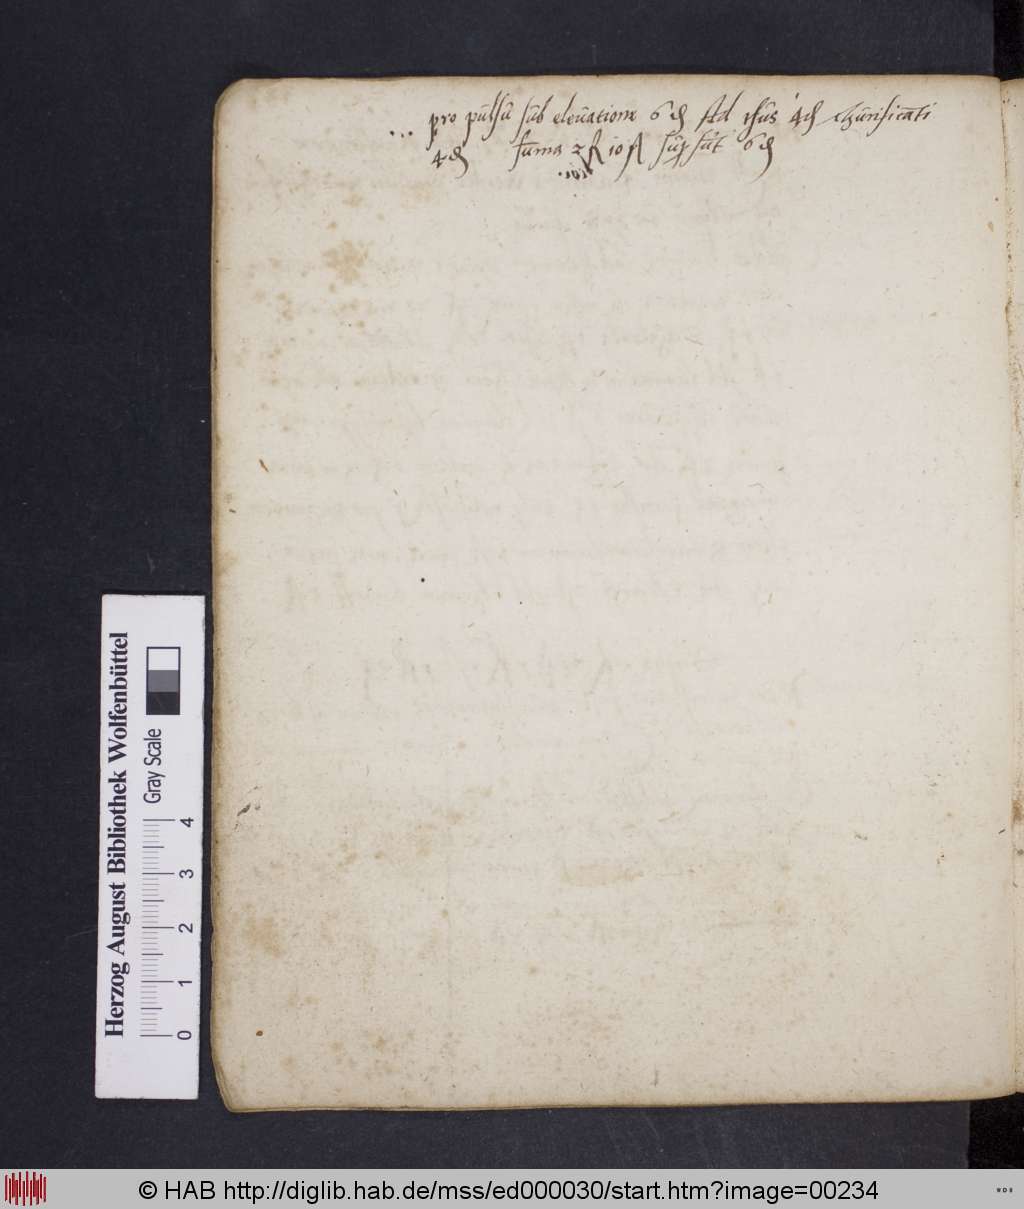 pro pulsu sub eleuatione 6 ₰ Ad 4 ₰ thurificati
4 ₰ suma 2 10 sup sut 6 ₰
Herzog August Bibliothek Wolfenbüttel
Gray Scale
0 1 2 3 4
© HAB http://diglib.hab.de/mss/ed000030/start.htm?image=00234